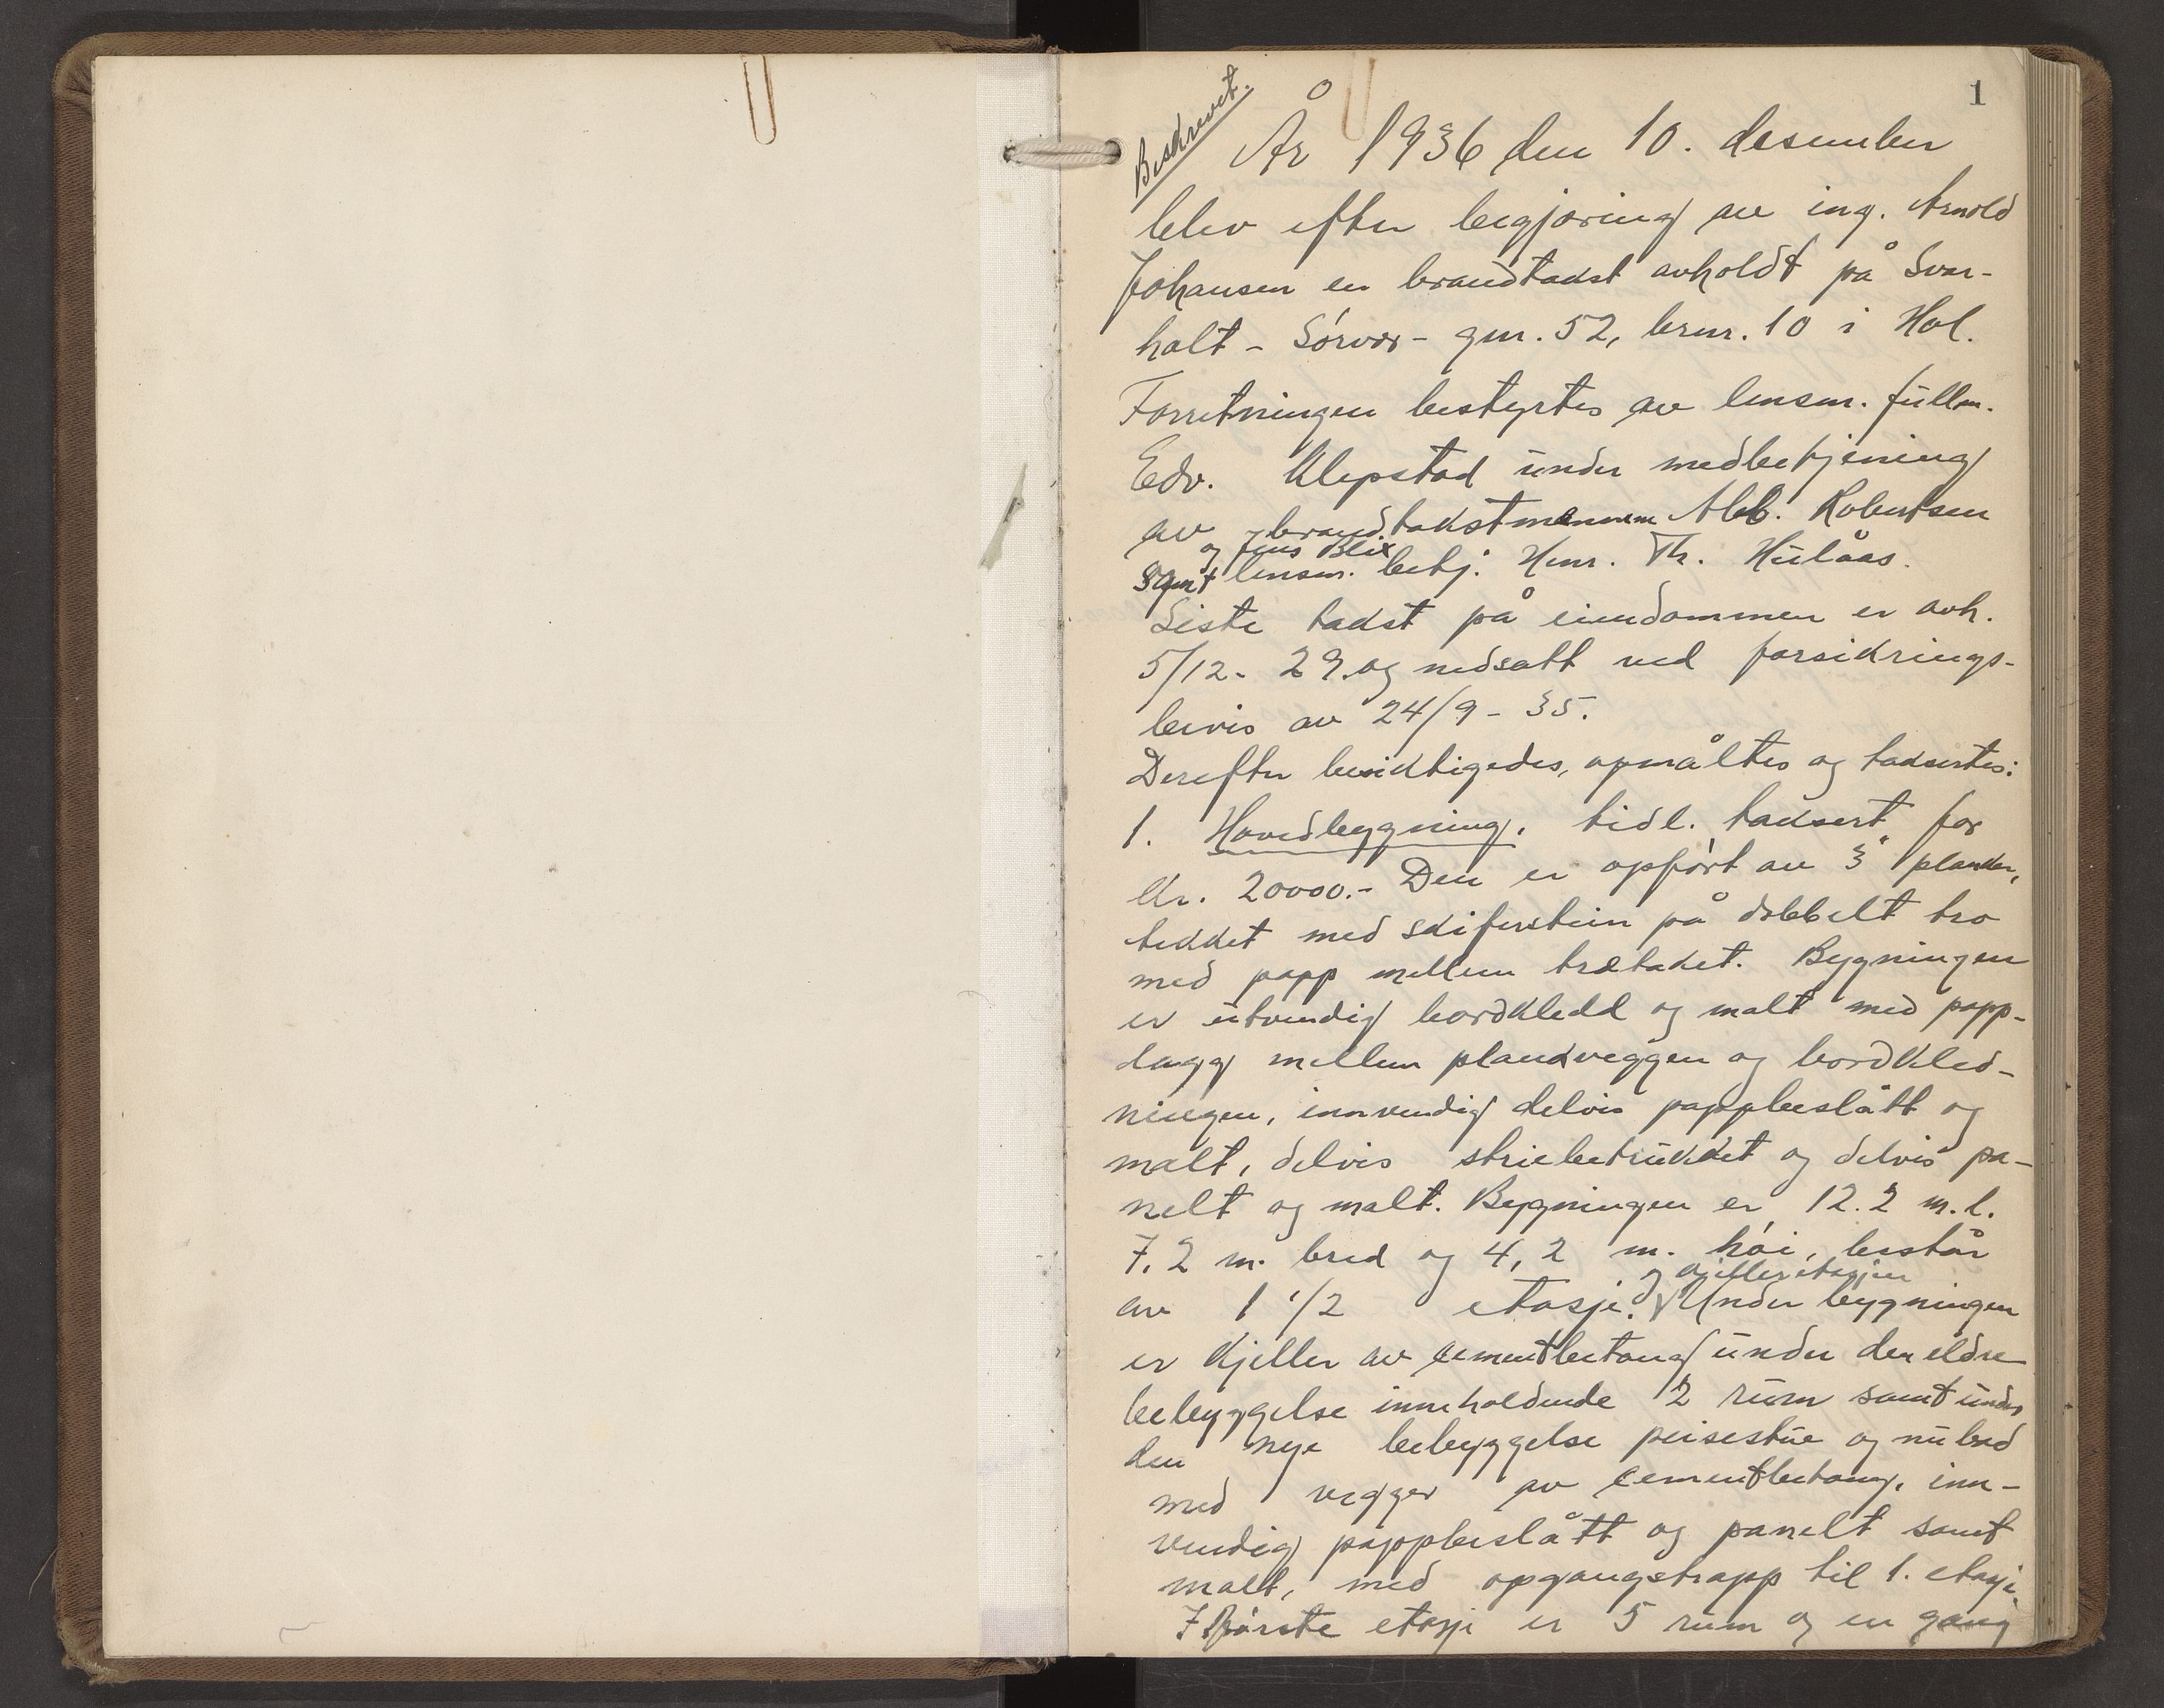 1
Beskrevet.
År 1936 den 10. desember
blev efter begjæring av ing. Arnold
Johansen en brandtakst avholdt på Svar-
holt - Sørvær - gnr. 52, brnr. 10 i Hol.
Forretningen bestyrtes av lensm. fullm.
Edv. Klepstad under medbetjening
av brandtakstmennene Alb. Robertsen
og Jens Blix
samt lensm. betj. Henr. Th. Hulåas.
Siste takst på eiendommen er avh.
5/12- 29. og nedsatt ved forsikrings-
bevis av 24/9 - 35.
Derefter besiktigedes, opmåltes og taksertes:
1. Hovedbygning, tidl. taksert for
Kr. 20000.- Den er opført av 3" planker,
tekket med skiferstein på dobbelt tro
med papp mellem trætaket. Bygningen
er utvendig bordkledd og malt med papp-
lagg mellem plankveggen og bordkled-
ningen, innvendig delvis pappbeslått og
malt, delvis striebetrukket og delvis pa-
nelt og malt. Bygningen er 12.2 m. l.
7,2 m. bred og 4,2 m. høi, består
og kjelleretasjen
av 1 1/2 etasje. Under bygningen
er kjeller av cementbetong under den eldre
bebyggelse inneholdende 2 rum samt under
den nye bebyggelse peisestue og
med vegger av cementbetong, inn-
vendig pappbeslått og panelt samt
malt, med opgangstrapp til 1. etasje.
I første etasje er 5 rum og en gang